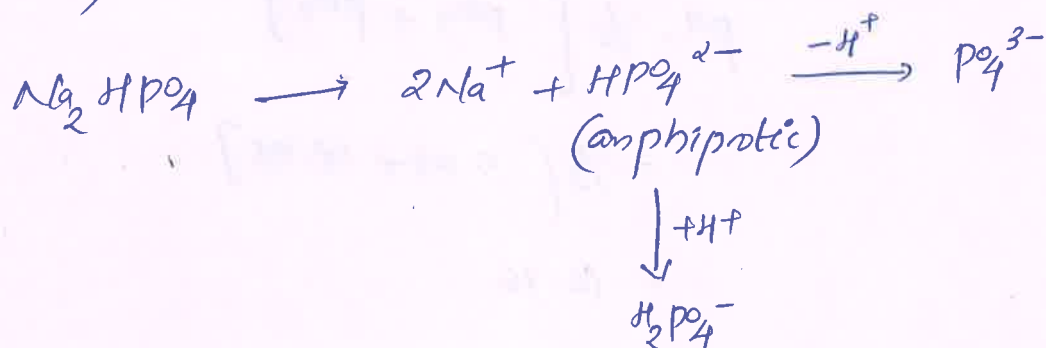 Na₂HPO₄ ⟶ 2Na⁺ + HPO₄²⁻ —−H⁺→ PO₄³⁻
(amphiprotic)
↓ +H⁺
H₂PO₄⁻